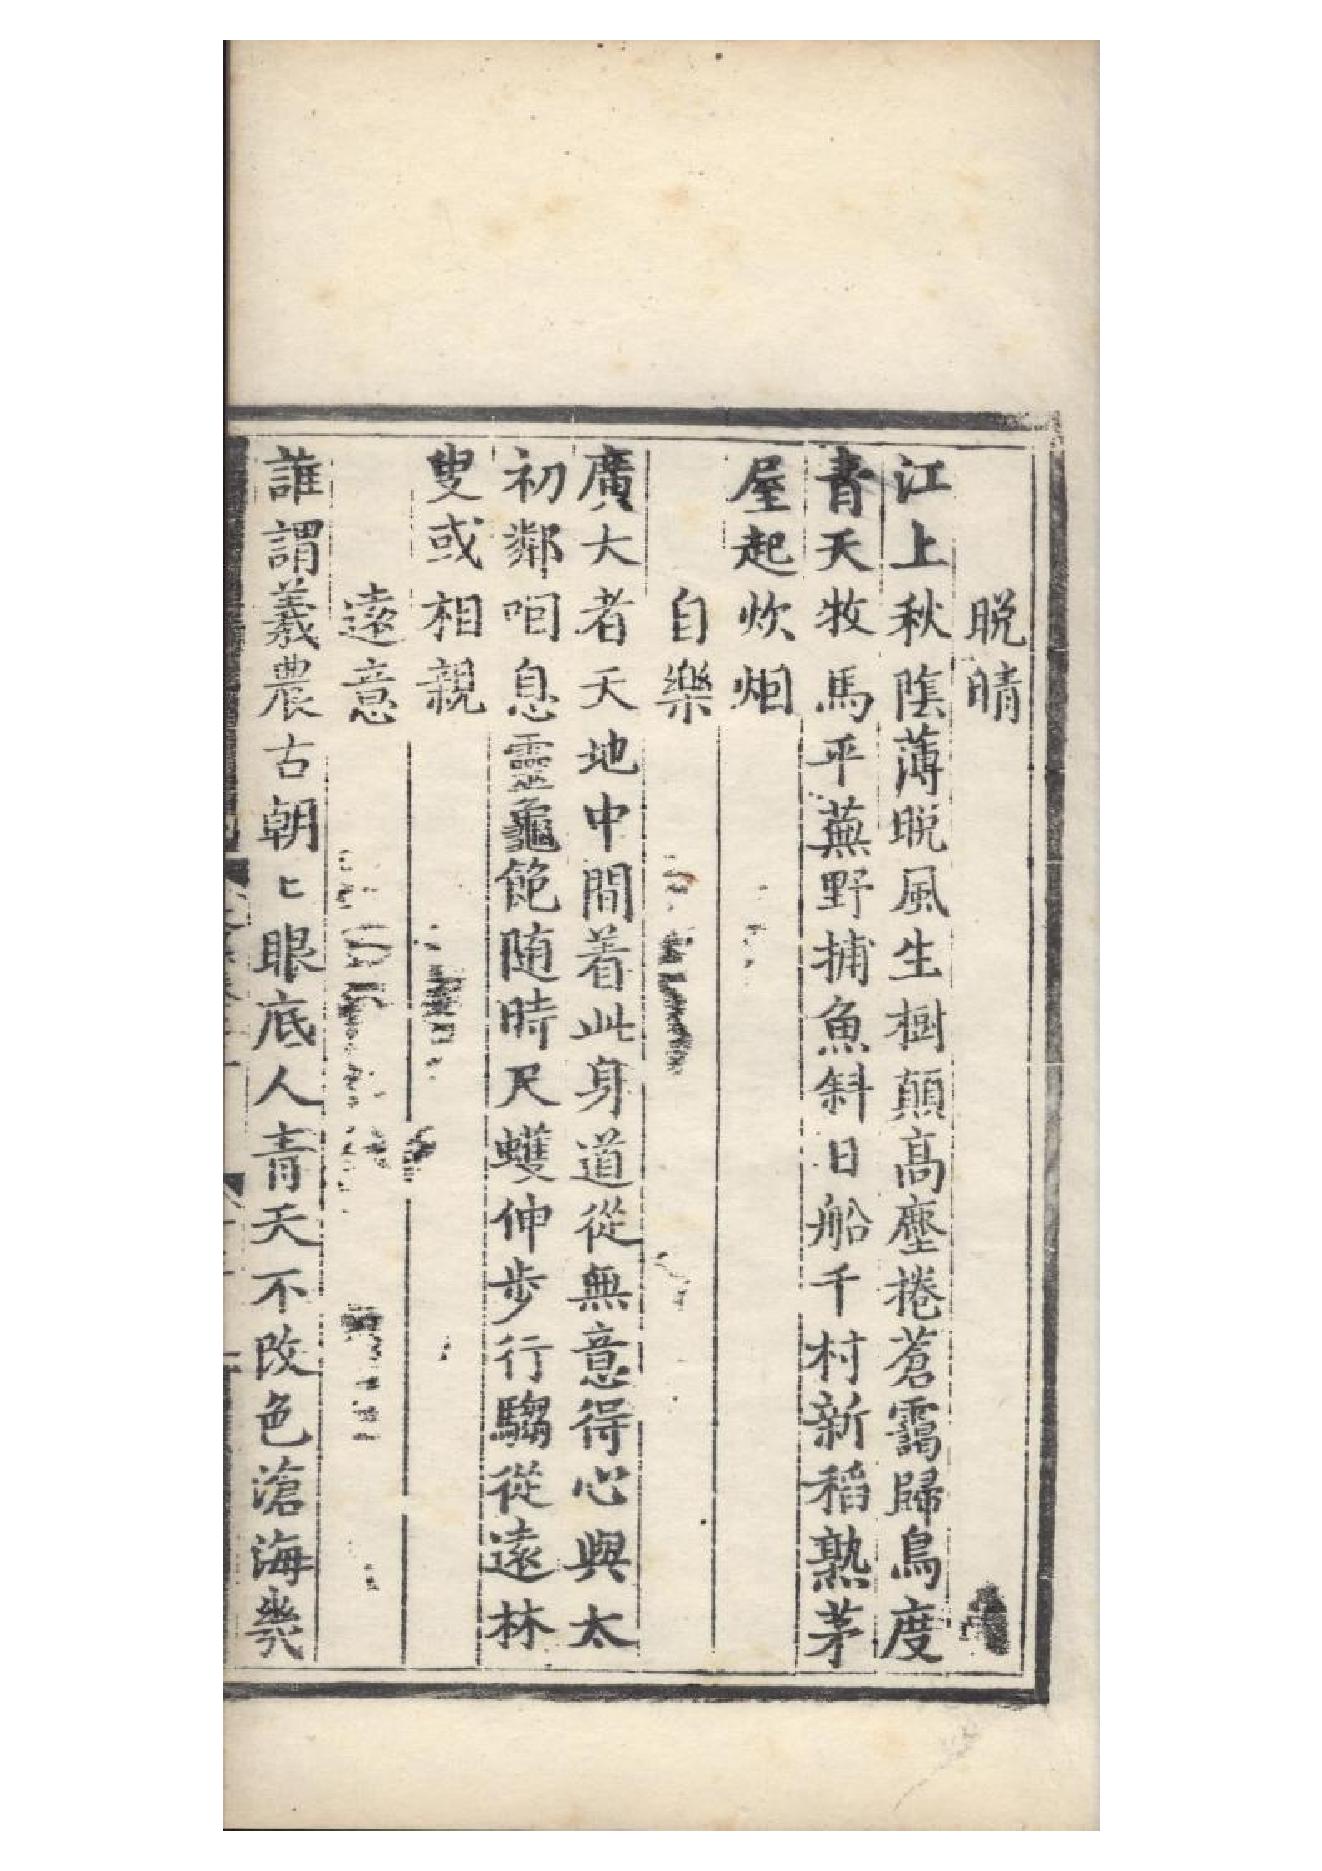 晚晴
江上秋陰薄晚風生樹顛高壑捲蒼靄歸鳥度
青天牧馬平蕪野捕魚斜日船千村新稻熟茅
屋起炊烟
自樂
廣大者天地中間着此身道從無意得心與太
初鄰呬息靈龜飽随時尺蠖伸步行騶從遠林
叟或相親
遠意
誰謂羲農古朝〻眼底人青天不改色滄海幾